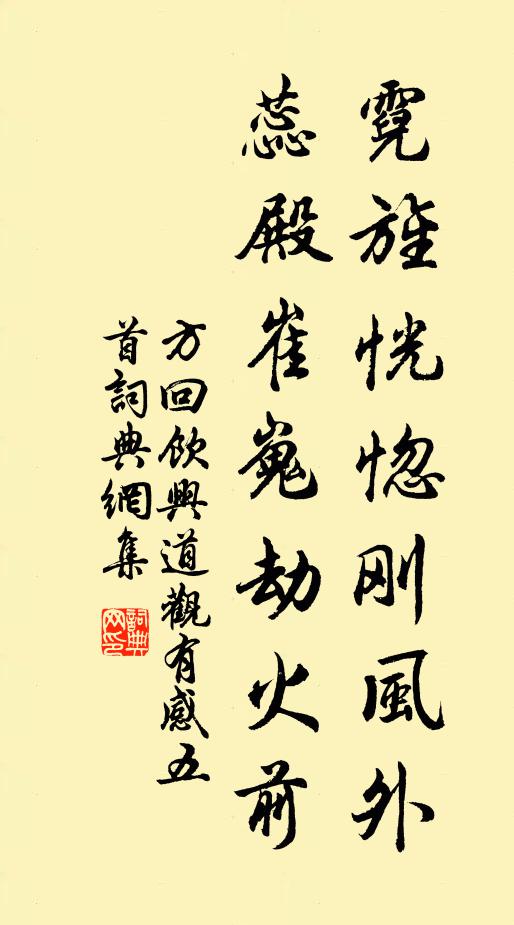 霓旌恍惚刚風外
蕊殿崔嵬劫火前
方回飲興道觀有感五
首詞典網集
詞典網印